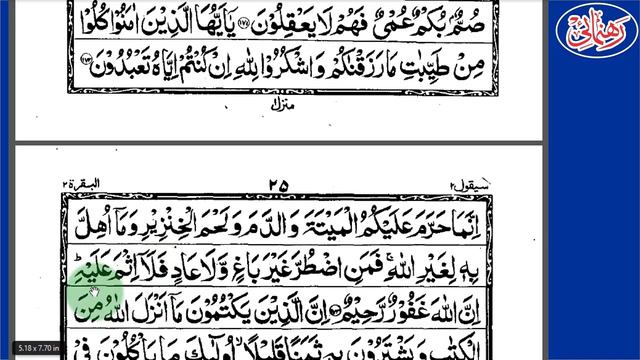 صُمٌّۢ بُكْمٌ عُمْىٌ فَهُمْ لَا يَعْقِلُوْنَ ﴿۱۷۱﴾ يٰٓاَيُّهَا الَّذِيْنَ اٰمَنُوْا كُلُوْا
مِنْ طَيِّبٰتِ مَا رَزَقْنٰكُمْ وَاشْكُرُوْا لِلّٰهِ اِنْ كُنْتُمْ اِيَّاهُ تَعْبُدُوْنَ ﴿۱۷۲﴾
منزل
سیقول ۲ ۲۵ البقرة ۲
اِنَّمَا حَرَّمَ عَلَيْكُمُ الْمَيْتَةَ وَالدَّمَ وَلَحْمَ الْخِنْزِيْرِ وَمَآ اُهِلَّ
بِهٖ لِغَيْرِ اللّٰهِ ۚ فَمَنِ اضْطُرَّ غَيْرَ بَاغٍ وَّلَا عَادٍ فَلَآ اِثْمَ عَلَيْهِ ؕ
اِنَّ اللّٰهَ غَفُوْرٌ رَّحِيْمٌ ﴿۱۷۳﴾ اِنَّ الَّذِيْنَ يَكْتُمُوْنَ مَآ اَنْزَلَ اللّٰهُ مِنَ
الْكِتٰبِ وَيَشْتَرُوْنَ بِهٖ ثَمَنًا قَلِيْلًا ۙ اُولٰٓئِكَ مَا يَاْكُلُوْنَ فِيْ
رہنمائی
5.18 x 7.70 in